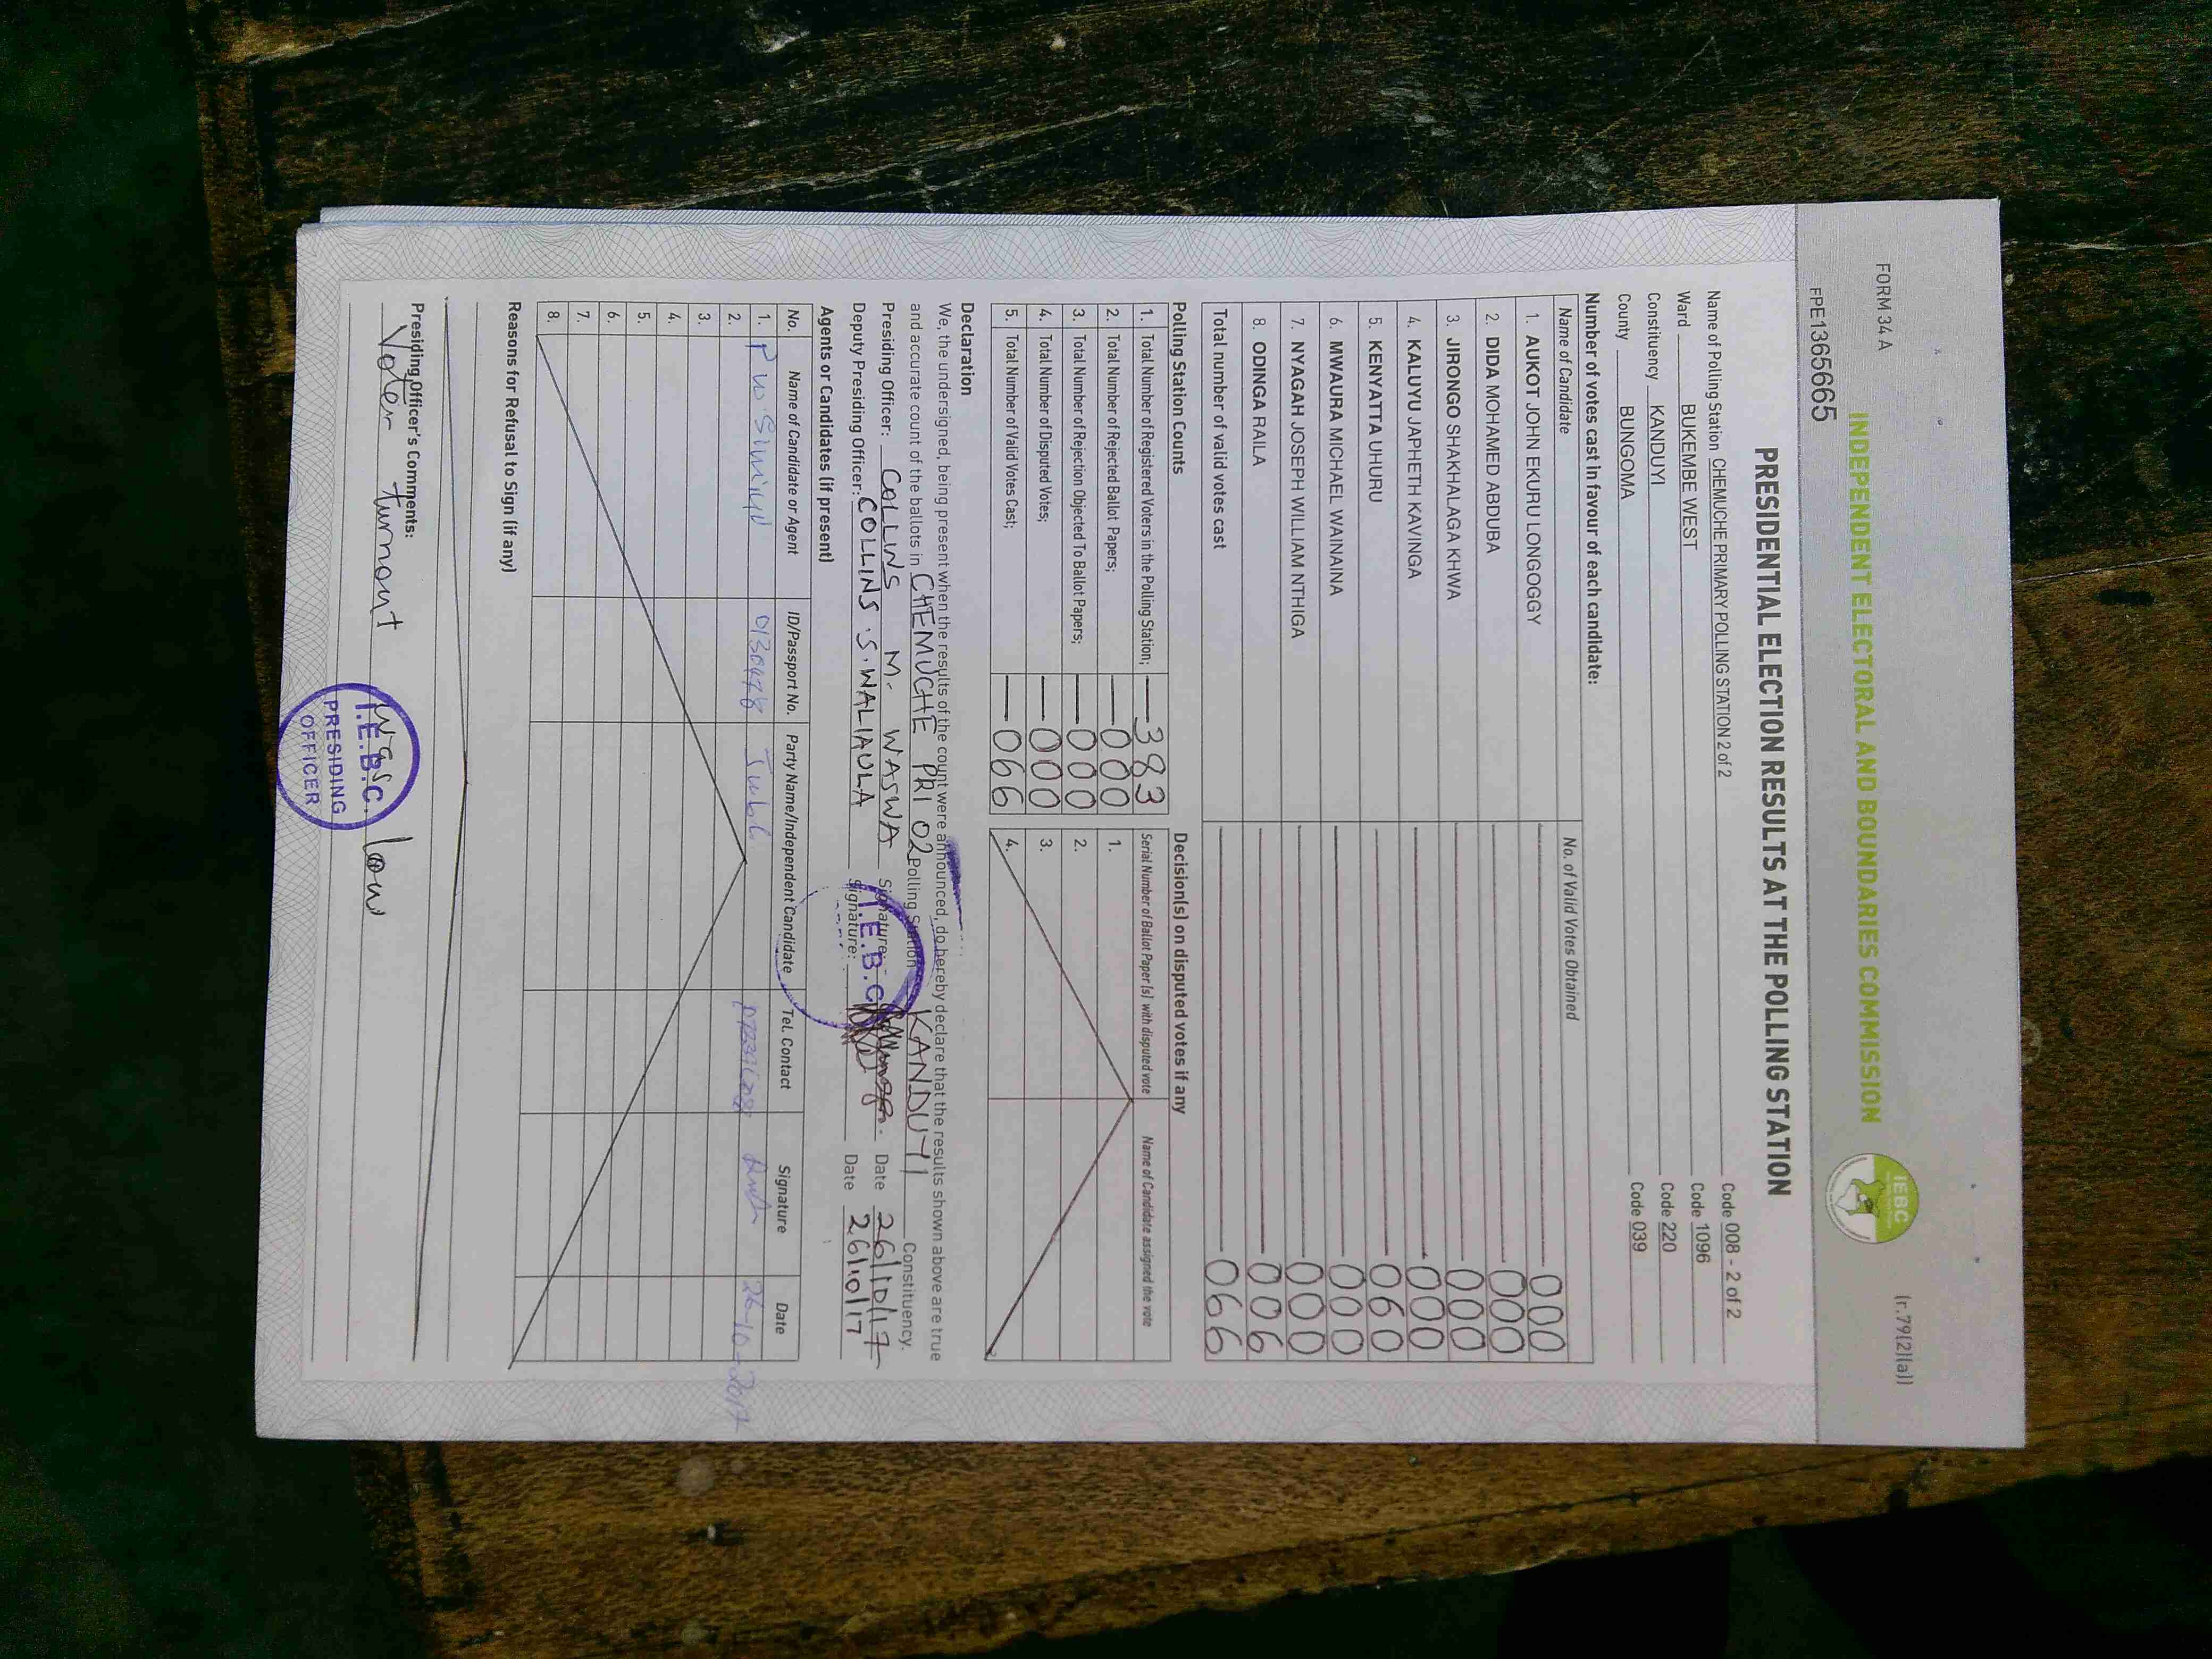 FORM 34 A
(r.79(2)(a))
INDEPENDENT ELECTORAL AND BOUNDARIES COMMISSION
IEBC
FPE1365665
PRESIDENTIAL ELECTION RESULTS AT THE POLLING STATION
Name of Polling Station CHEMUCHE PRIMARY POLLING STATION 2 of 2 Code 008 - 2 of 2
Ward BUKEMBE WEST Code 1096
Constituency KANDUYI Code 220
County BUNGOMA Code 039
Number of votes cast in favour of each candidate:
Name of Candidate No. of Valid Votes Obtained
1. AUKOT JOHN EKURU LONGOGGY 000
2. DIDA MOHAMED ABDUBA 000
3. JIRONGO SHAKHALAGA KHWA 000
4. KALUYU JAPHETH KAVINGA 000
5. KENYATTA UHURU 060
6. MWAURA MICHAEL WAINAINA 000
7. NYAGAH JOSEPH WILLIAM NTHIGA 000
8. ODINGA RAILA 006
Total number of valid votes cast 066
Polling Station Counts
1. Total Number of Registered Voters in the Polling Station; 383
2. Total Number of Rejected Ballot Papers; 000
3. Total Number of Rejection Objected To Ballot Papers; 000
4. Total Number of Disputed Votes; 000
5. Total Number of Valid Votes Cast; 066
Decision(s) on disputed votes if any
Serial Number of Ballot Paper (s) with disputed vote Name of Candidate assigned the vote
1.
2.
3.
4.
Declaration
We, the undersigned, being present when the results of the count were announced, do hereby declare that the results shown above are true
and accurate count of the ballots in CHEMUCHE PRI 02 Polling Station KANDUYI Constituency.
Presiding Officer: COLLINS M. WASWA Signature: Date 26/10/17
Deputy Presiding Officer: COLLINS S. WALIAULA Signature: Date 26/10/17
I.E.B.C
Agents or Candidates (if present)
No. Name of Candidate or Agent ID/Passport No. Party Name/Independent Candidate Tel. Contact Signature Date
1. 26-10-2017
2.
3.
4.
5.
6.
7.
8.
Reasons for Refusal to Sign (if any)
Presiding Officer's Comments:
Voter turnout was low
I.E.B.C.
PRESIDING
OFFICER